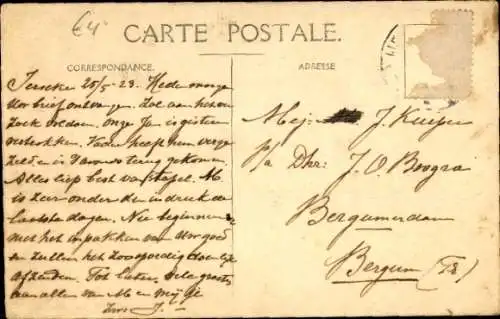 €4
CARTE POSTALE.
CORRESPONDANCE.
ADRESSE
Ierseke 25/5-23. Heden morgen
Uw brief ontvangen. Zoe aan
zoek voldoen. onze Jan is gisteren
vertrokken. Vader heeft hem verge
zeld en is
Alles liep best van stapel. M
is zeer onder de indruk de
laatste dagen. Nu beginnen
met het inpakken van Uw goed
en zullen het zoo spoedig
afzenden. Tot later. vele groeten
aan allen van M en mij
Uwe J.
Mej: J. Kuiper
p/a Dhr: J. O
Bergumerdam
Bergum (Fr)